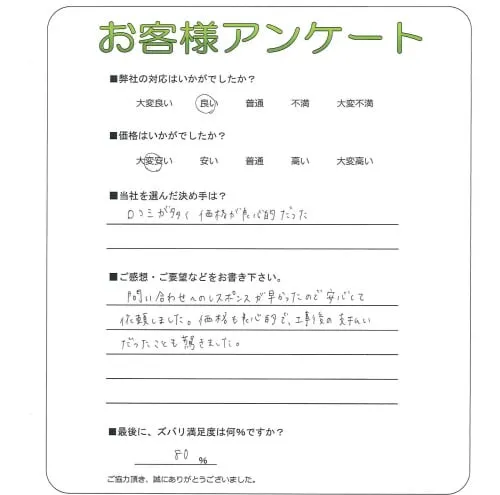 お客様アンケート
■弊社の対応はいかがでしたか？
大変良い 良い 普通 不満 大変不満
■価格はいかがでしたか？
大変安い 安い 普通 高い 大変高い
■当社を選んだ決め手は？
口コミが多く 価格が良心的だった
■ご感想・ご要望などをお書き下さい。
問い合わせへのレスポンスが早かったので安心して
依頼しました。価格も良心的で、工事後の支払い
だったことも驚きました。
■最後に、ズバリ満足度は何%ですか？
80 %
ご協力頂き、誠にありがとうございました。